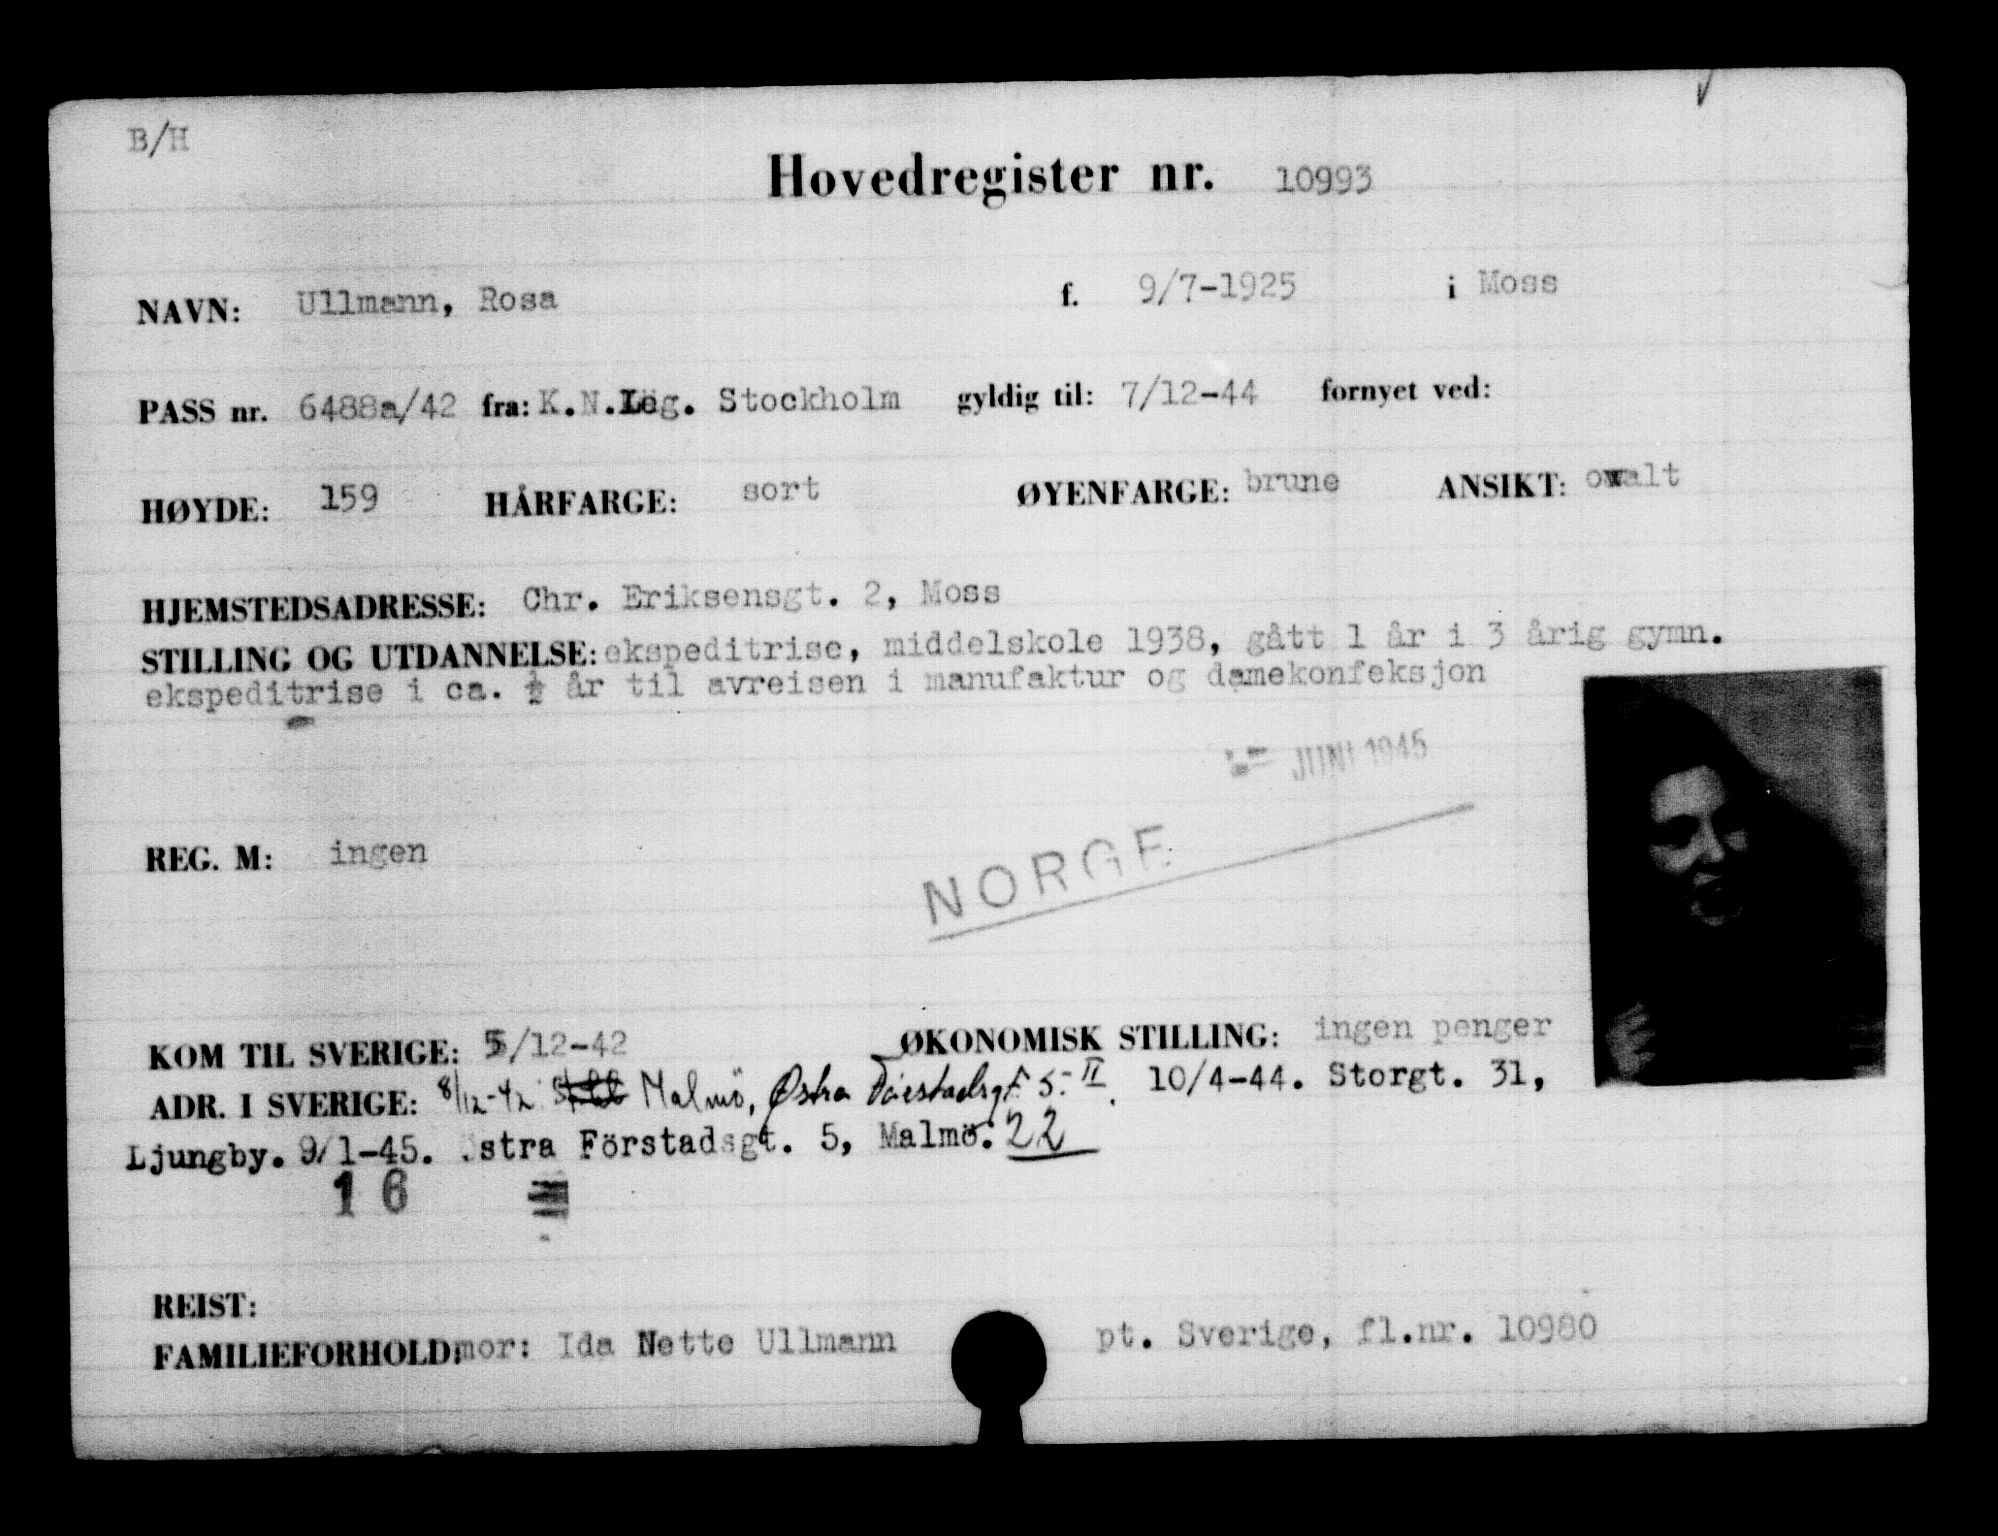 B/H
Hovedregister nr. 10993
NAVN: Ullmann, Rosa f. 9/7-1925 i Moss
PASS nr. 6488a/42 fra: K.N.Leg. Stockholm gyldig til: 7/12-44 fornyet ved:
HØYDE: 159 HÅRFARGE: sort ØYENFARGE: brune ANSIKT: ovalt
HJEMSTEDSADRESSE: Chr. Eriksensgt. 2, Moss
STILLING OG UTDANNELSE: ekspeditrise, middelskole 1938, gått 1 år i 3 årig gymn.
ekspeditrise i ca. ½ år til avreisen i manufaktur og damekonfeksjon
JUNI 1945
REG. M: ingen
NORGE
KOM TIL SVERIGE: 5/12-42 ØKONOMISK STILLING: ingen penger
ADR. I SVERIGE: 8/12-42 Malmö, Østra 5 II. 10/4-44. Storgt. 31,
Ljungby. 9/1-45. Östra Förstadsgt. 5, Malmö. 22
16
REIST:
FAMILIEFORHOLD: mor: Ida Nette Ullmann pt. Sverige, fl.nr. 10980